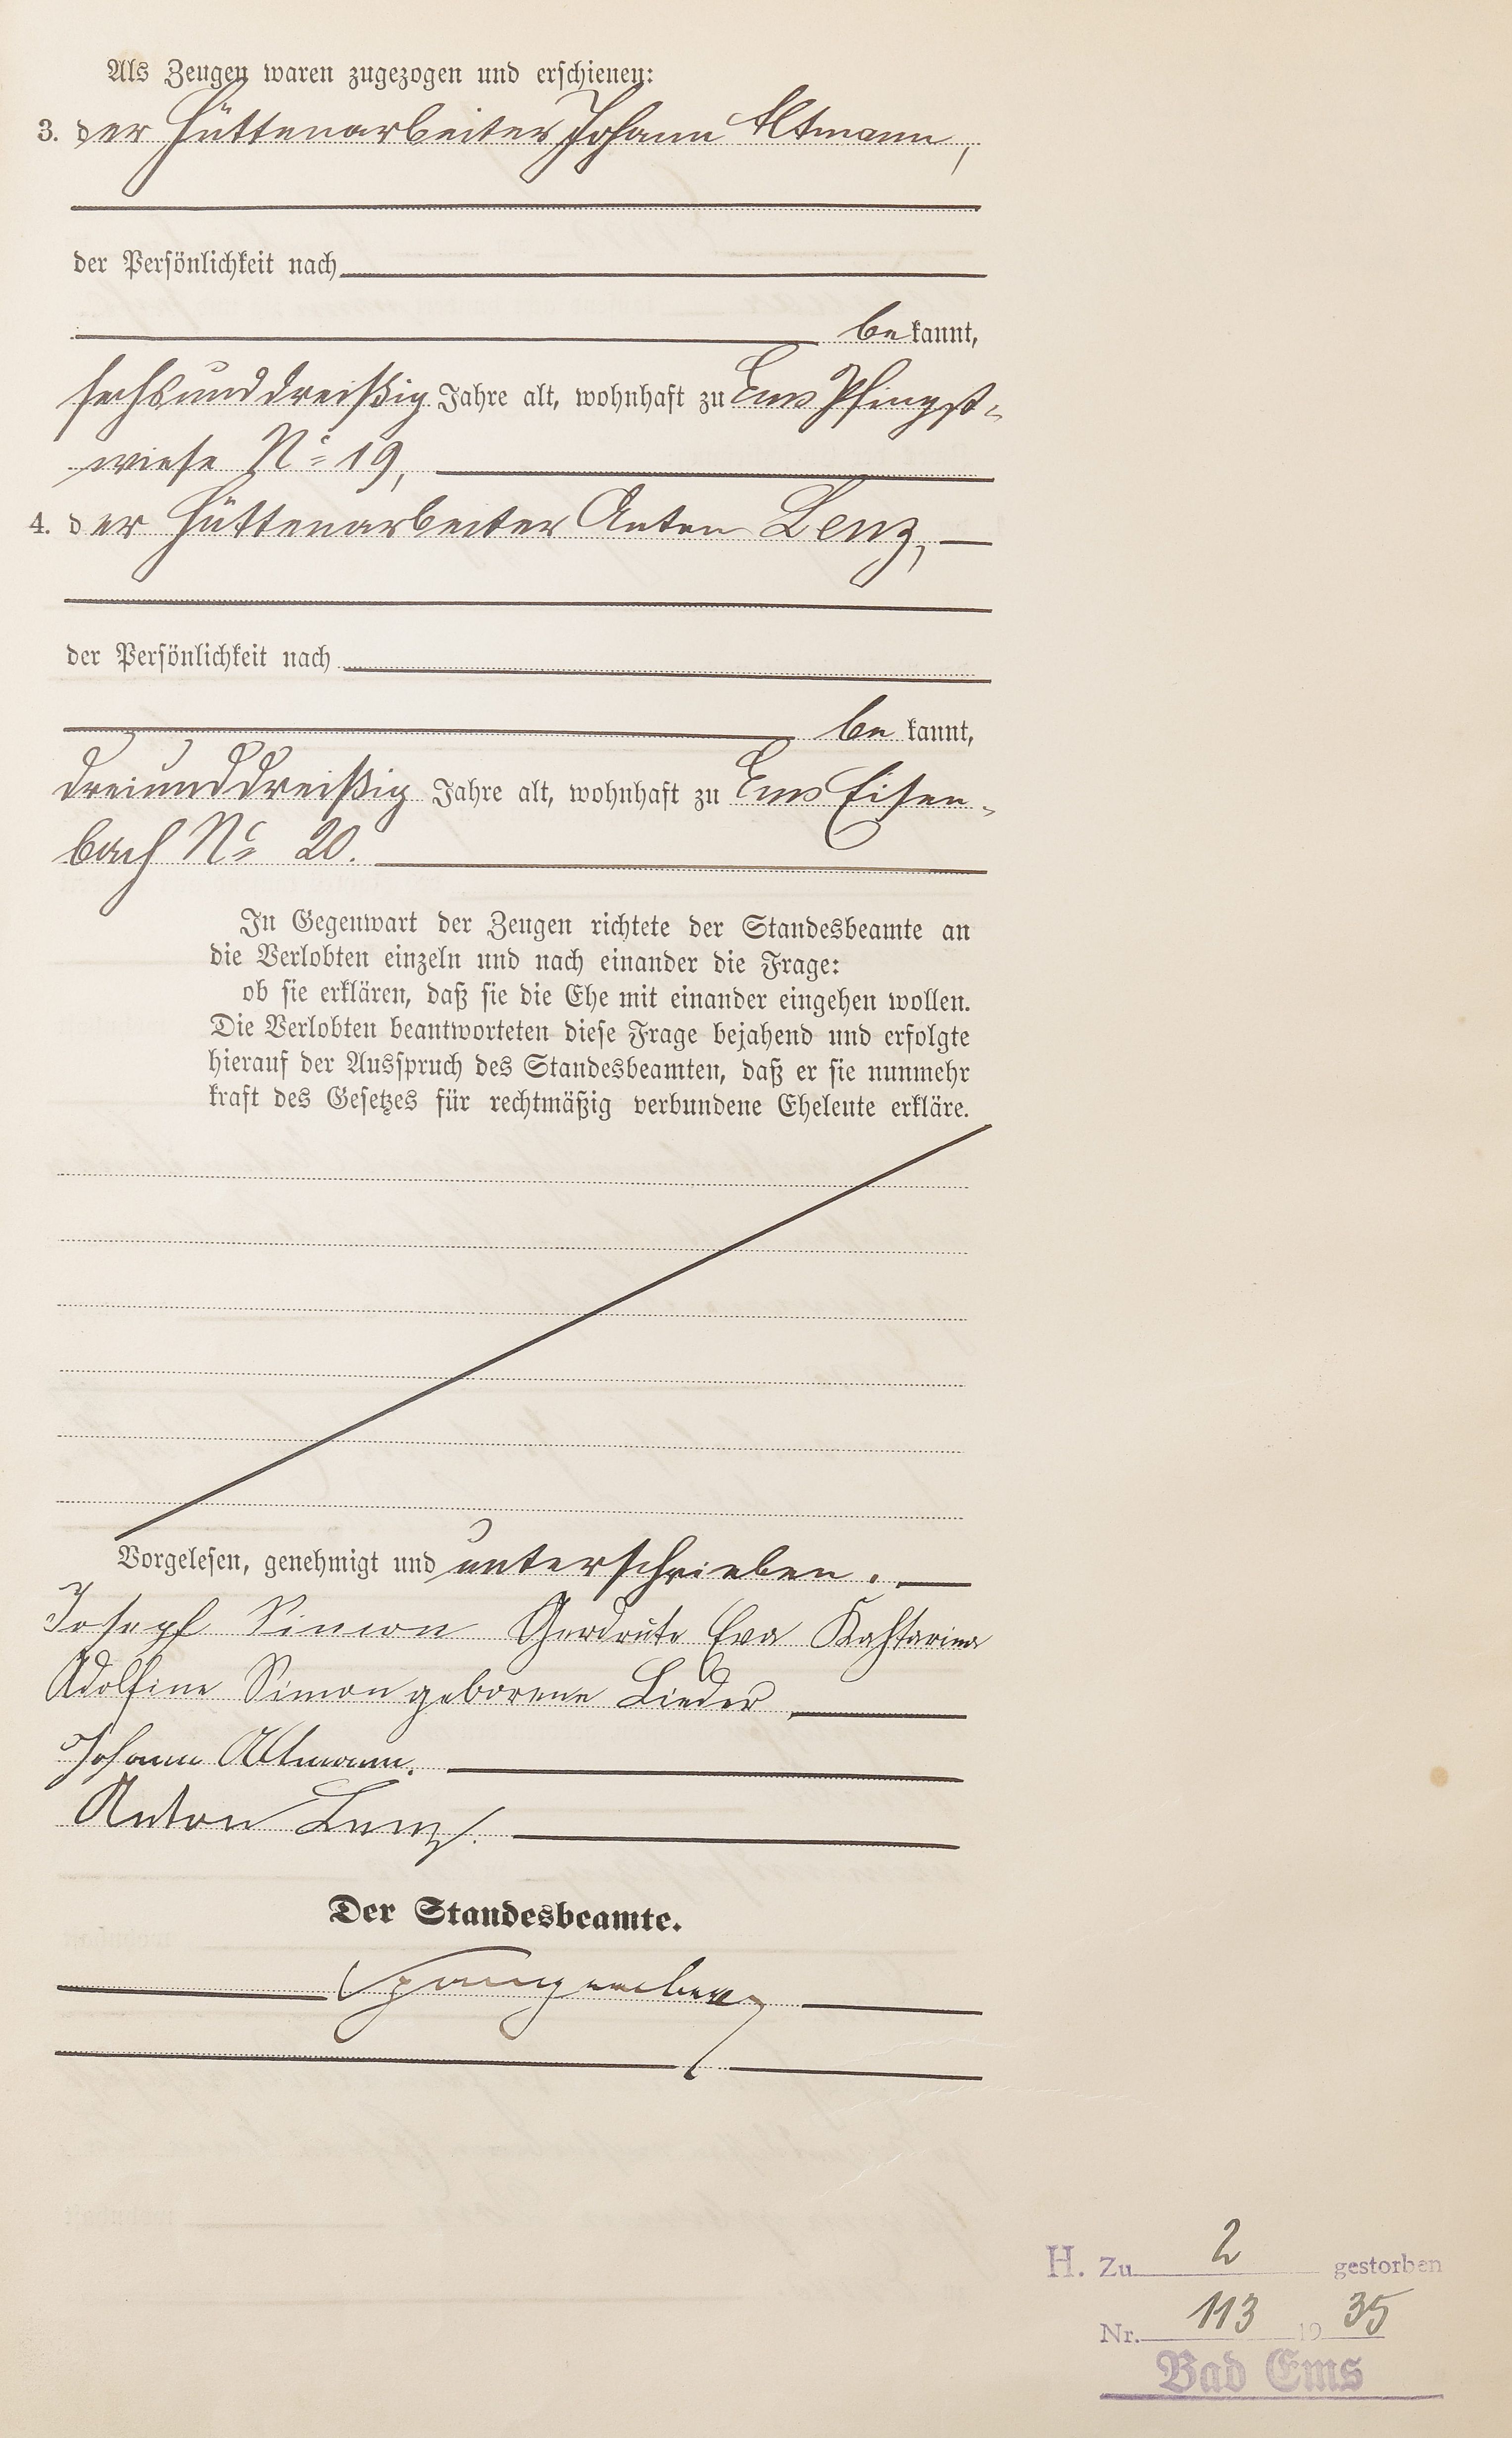 Als Zeugen waren zugezogen und erschienen:
3. der Hüttenarbeiter Johann Altmann,
der Persönlichkeit nach
be kannt,
sechsunddreißig Jahre alt, wohnhaft zu Ems Pfingst-
wiese No 19,
4. der Hüttenarbeiter Anton Lenz,
der Persönlichkeit nach
be kannt,
dreiunddreißig Jahre alt, wohnhaft zu Ems Eisen-
bach No 20.
In Gegenwart der Zeugen richtete der Standesbeamte an
die Verlobten einzeln und nach einander die Frage:
ob sie erklären, daß sie die Ehe mit einander eingehen wollen.
Die Verlobten beantworteten diese Frage bejahend und erfolgte
hierauf der Ausspruch des Standesbeamten, daß er sie nunmehr
kraft des Gesetzes für rechtmäßig verbundene Eheleute erkläre.
Vorgelesen, genehmigt und unterschrieben.
Joseph Simon Gerdrute Eva Kahtarina
Adolfine Simon geborene Lieder
Johann Altmann.
Anton Lenz.
Der Standesbeamte.
Spangenberg
H. Zu 2 gestorben
Nr. 113 19 35
Bad Ems